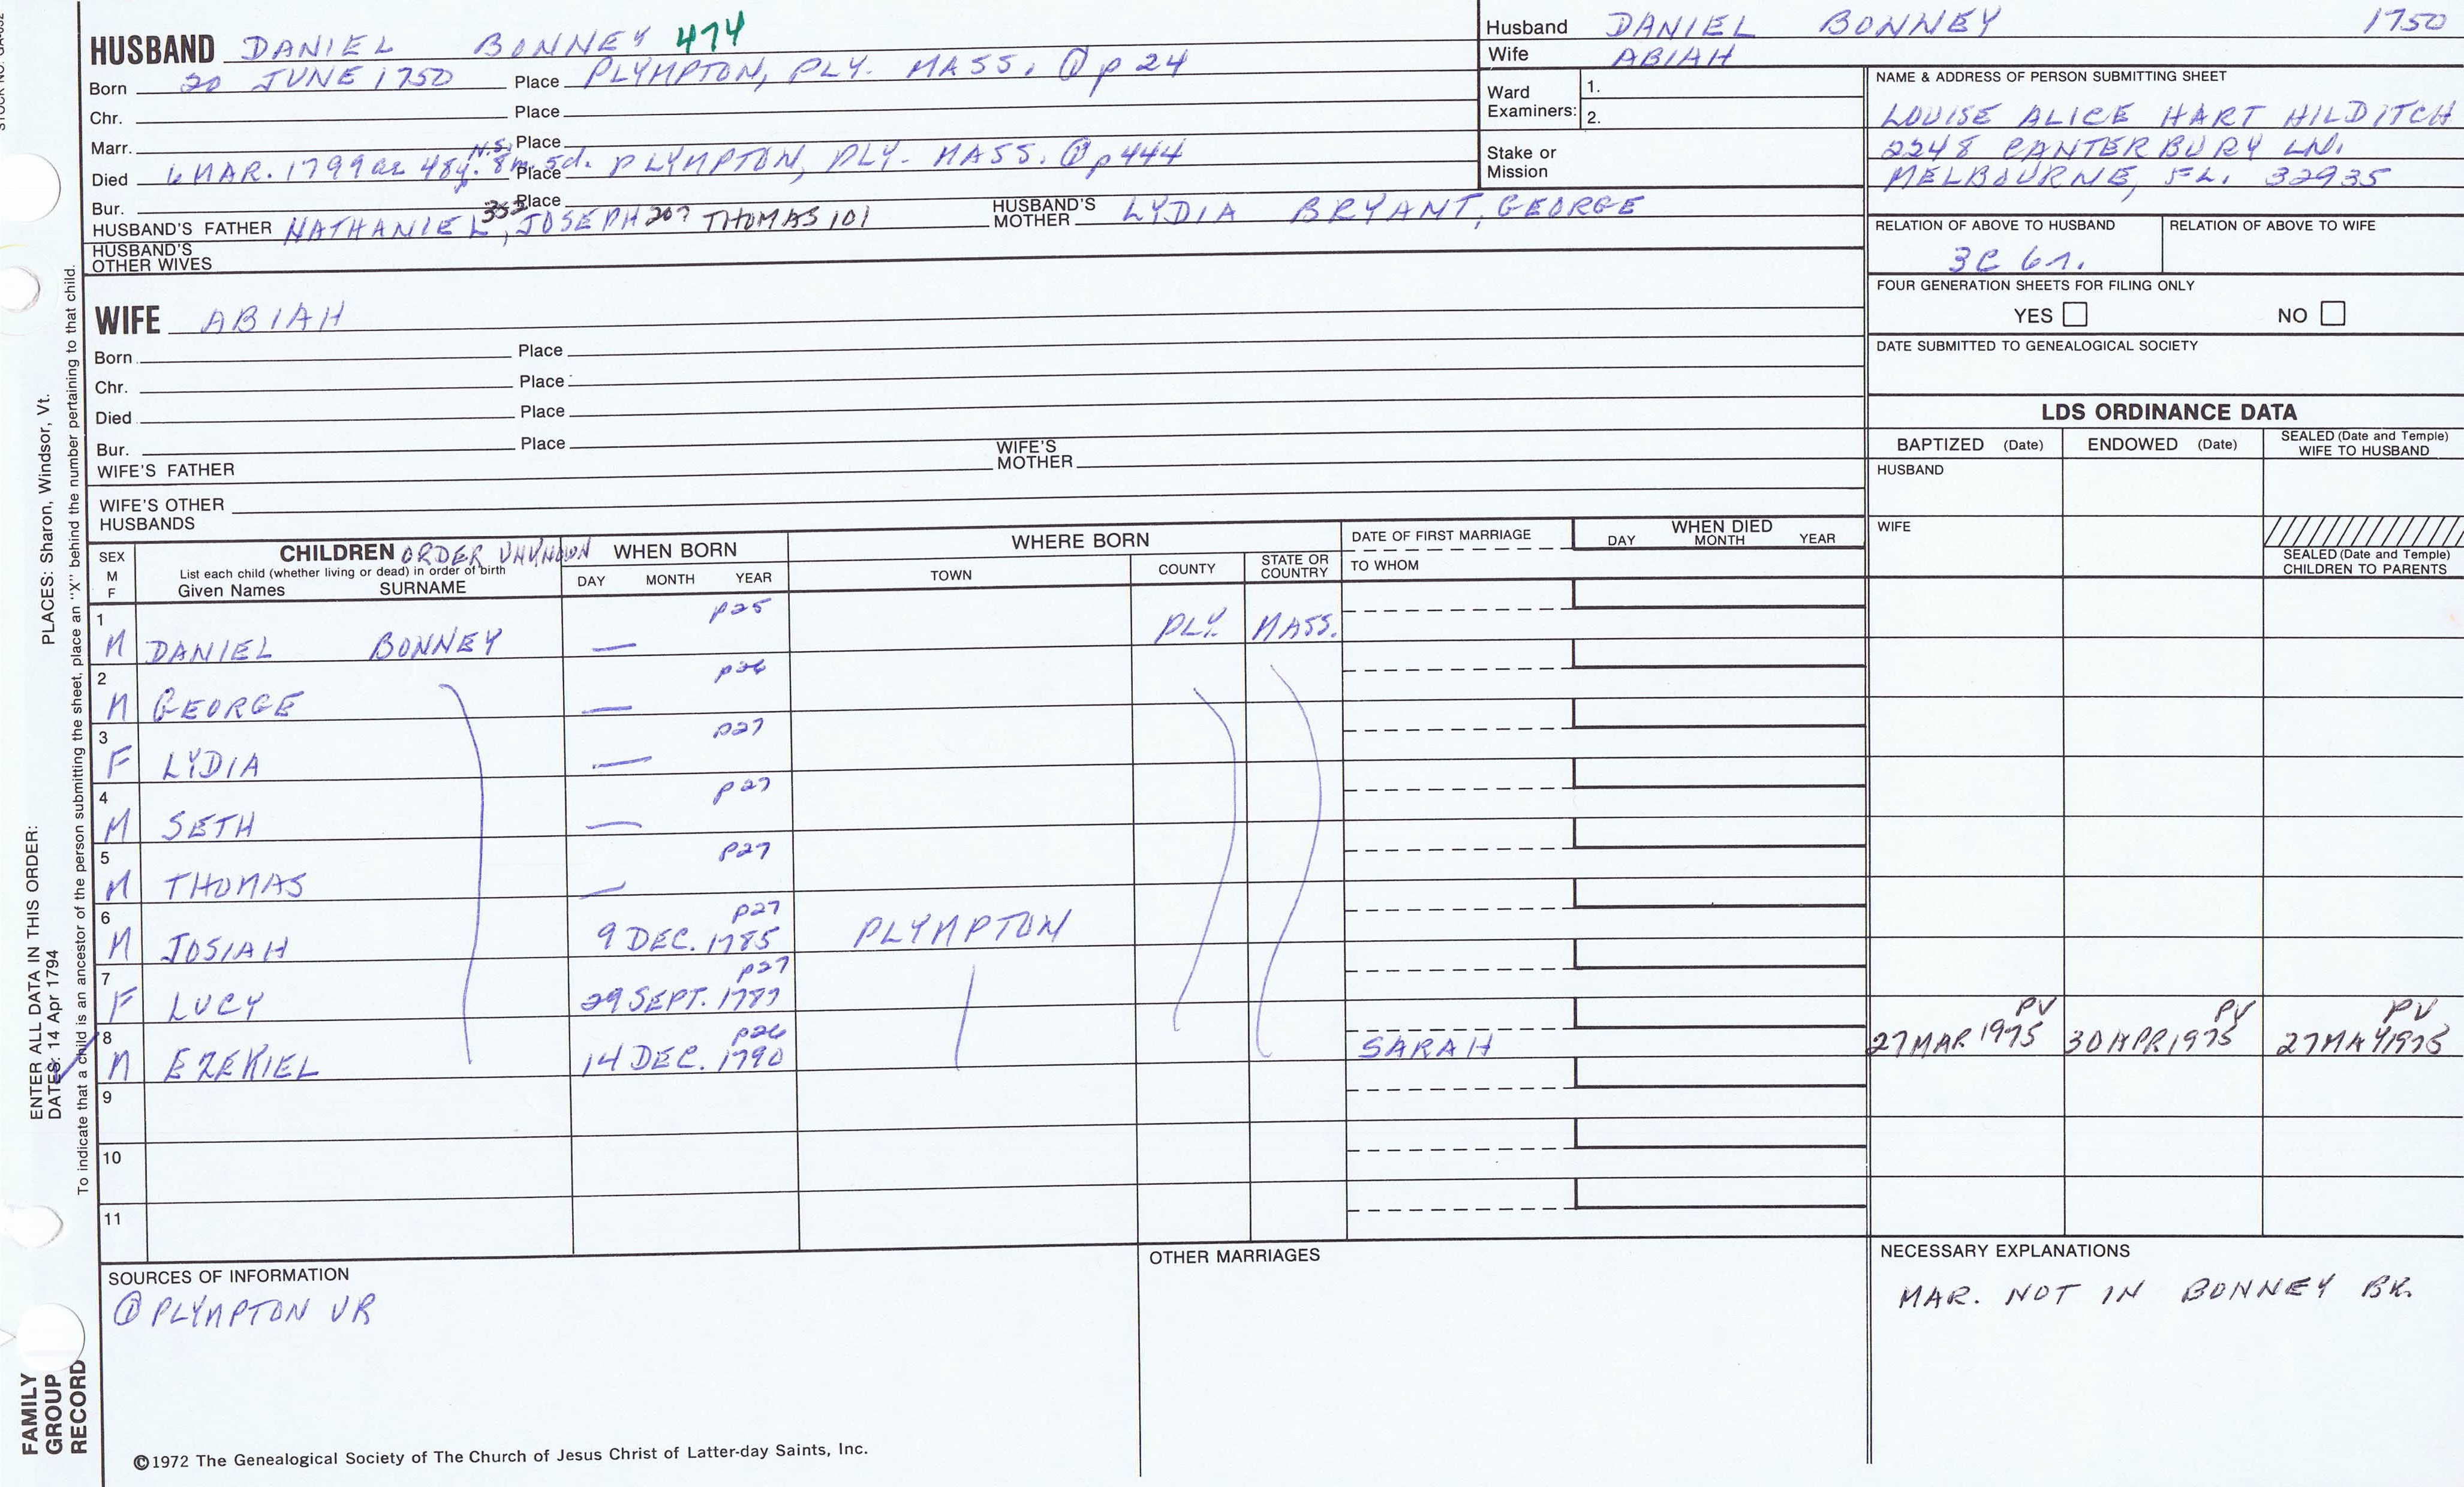 HUSBAND DANIEL BONNEY 474
Born 20 JUNE 1750 Place PLYMPTON, PLY. MASS. @ p 24
Chr. Place
Marr. Place
N.S.
Died 6 MAR. 1799 ae 48y. 8m. 5d. Place PLYMPTON, PLY. MASS. @ p444
Bur. Place
HUSBAND'S FATHER NATHANIEL 353, JOSEPH 207 THOMAS 101 HUSBAND'S MOTHER LYDIA BRYANT, GEORGE
HUSBAND'S OTHER WIVES
WIFE ABIAH
Born Place
Chr. Place
Died Place
Bur. Place
WIFE'S FATHER WIFE'S MOTHER
WIFE'S OTHER HUSBANDS
Husband DANIEL BONNEY 1750
Wife ABIAH
Ward Examiners: 1.
2.
Stake or Mission
NAME & ADDRESS OF PERSON SUBMITTING SHEET
LOUISE ALICE HART HILDITCH
2248 CANTERBURY LN.
MELBOURNE, FL. 32935
RELATION OF ABOVE TO HUSBAND RELATION OF ABOVE TO WIFE
3C 6r.
FOUR GENERATION SHEETS FOR FILING ONLY
YES NO
DATE SUBMITTED TO GENEALOGICAL SOCIETY
LDS ORDINANCE DATA
BAPTIZED (Date) ENDOWED (Date) SEALED (Date and Temple) WIFE TO HUSBAND
HUSBAND
WIFE
SEALED (Date and Temple) CHILDREN TO PARENTS
SEX M F CHILDREN ORDER UNKNOWN WHEN BORN WHERE BORN DATE OF FIRST MARRIAGE WHEN DIED
List each child (whether living or dead) in order of birth
Given Names SURNAME DAY MONTH YEAR TOWN COUNTY STATE OR COUNTRY TO WHOM DAY MONTH YEAR
1 p25
M DANIEL BONNEY — PLY. MASS.
2 p26
M GEORGE —
3 p27
F LYDIA —
4 p27
M SETH —
5 p27
M THOMAS —
6 p27
M JOSIAH 9 DEC. 1785 PLYMPTON
7 p27
F LUCY 29 SEPT. 1787
8 p26 PV PV PV
M EZEKIEL 14 DEC. 1790 SARAH 27 MAR 1975 30 APR 1975 27 MAY 1975
9
10
11
SOURCES OF INFORMATION
@ PLYMPTON VR
OTHER MARRIAGES
NECESSARY EXPLANATIONS
MAR. NOT IN BONNEY BK.
©1972 The Genealogical Society of The Church of Jesus Christ of Latter-day Saints, Inc.
FAMILY GROUP RECORD
ENTER ALL DATA IN THIS ORDER:
DATES: 14 Apr 1794
PLACES: Sharon, Windsor, Vt.
To indicate that a child is an ancestor of the person submitting the sheet, place an "X" behind the number pertaining to that child.